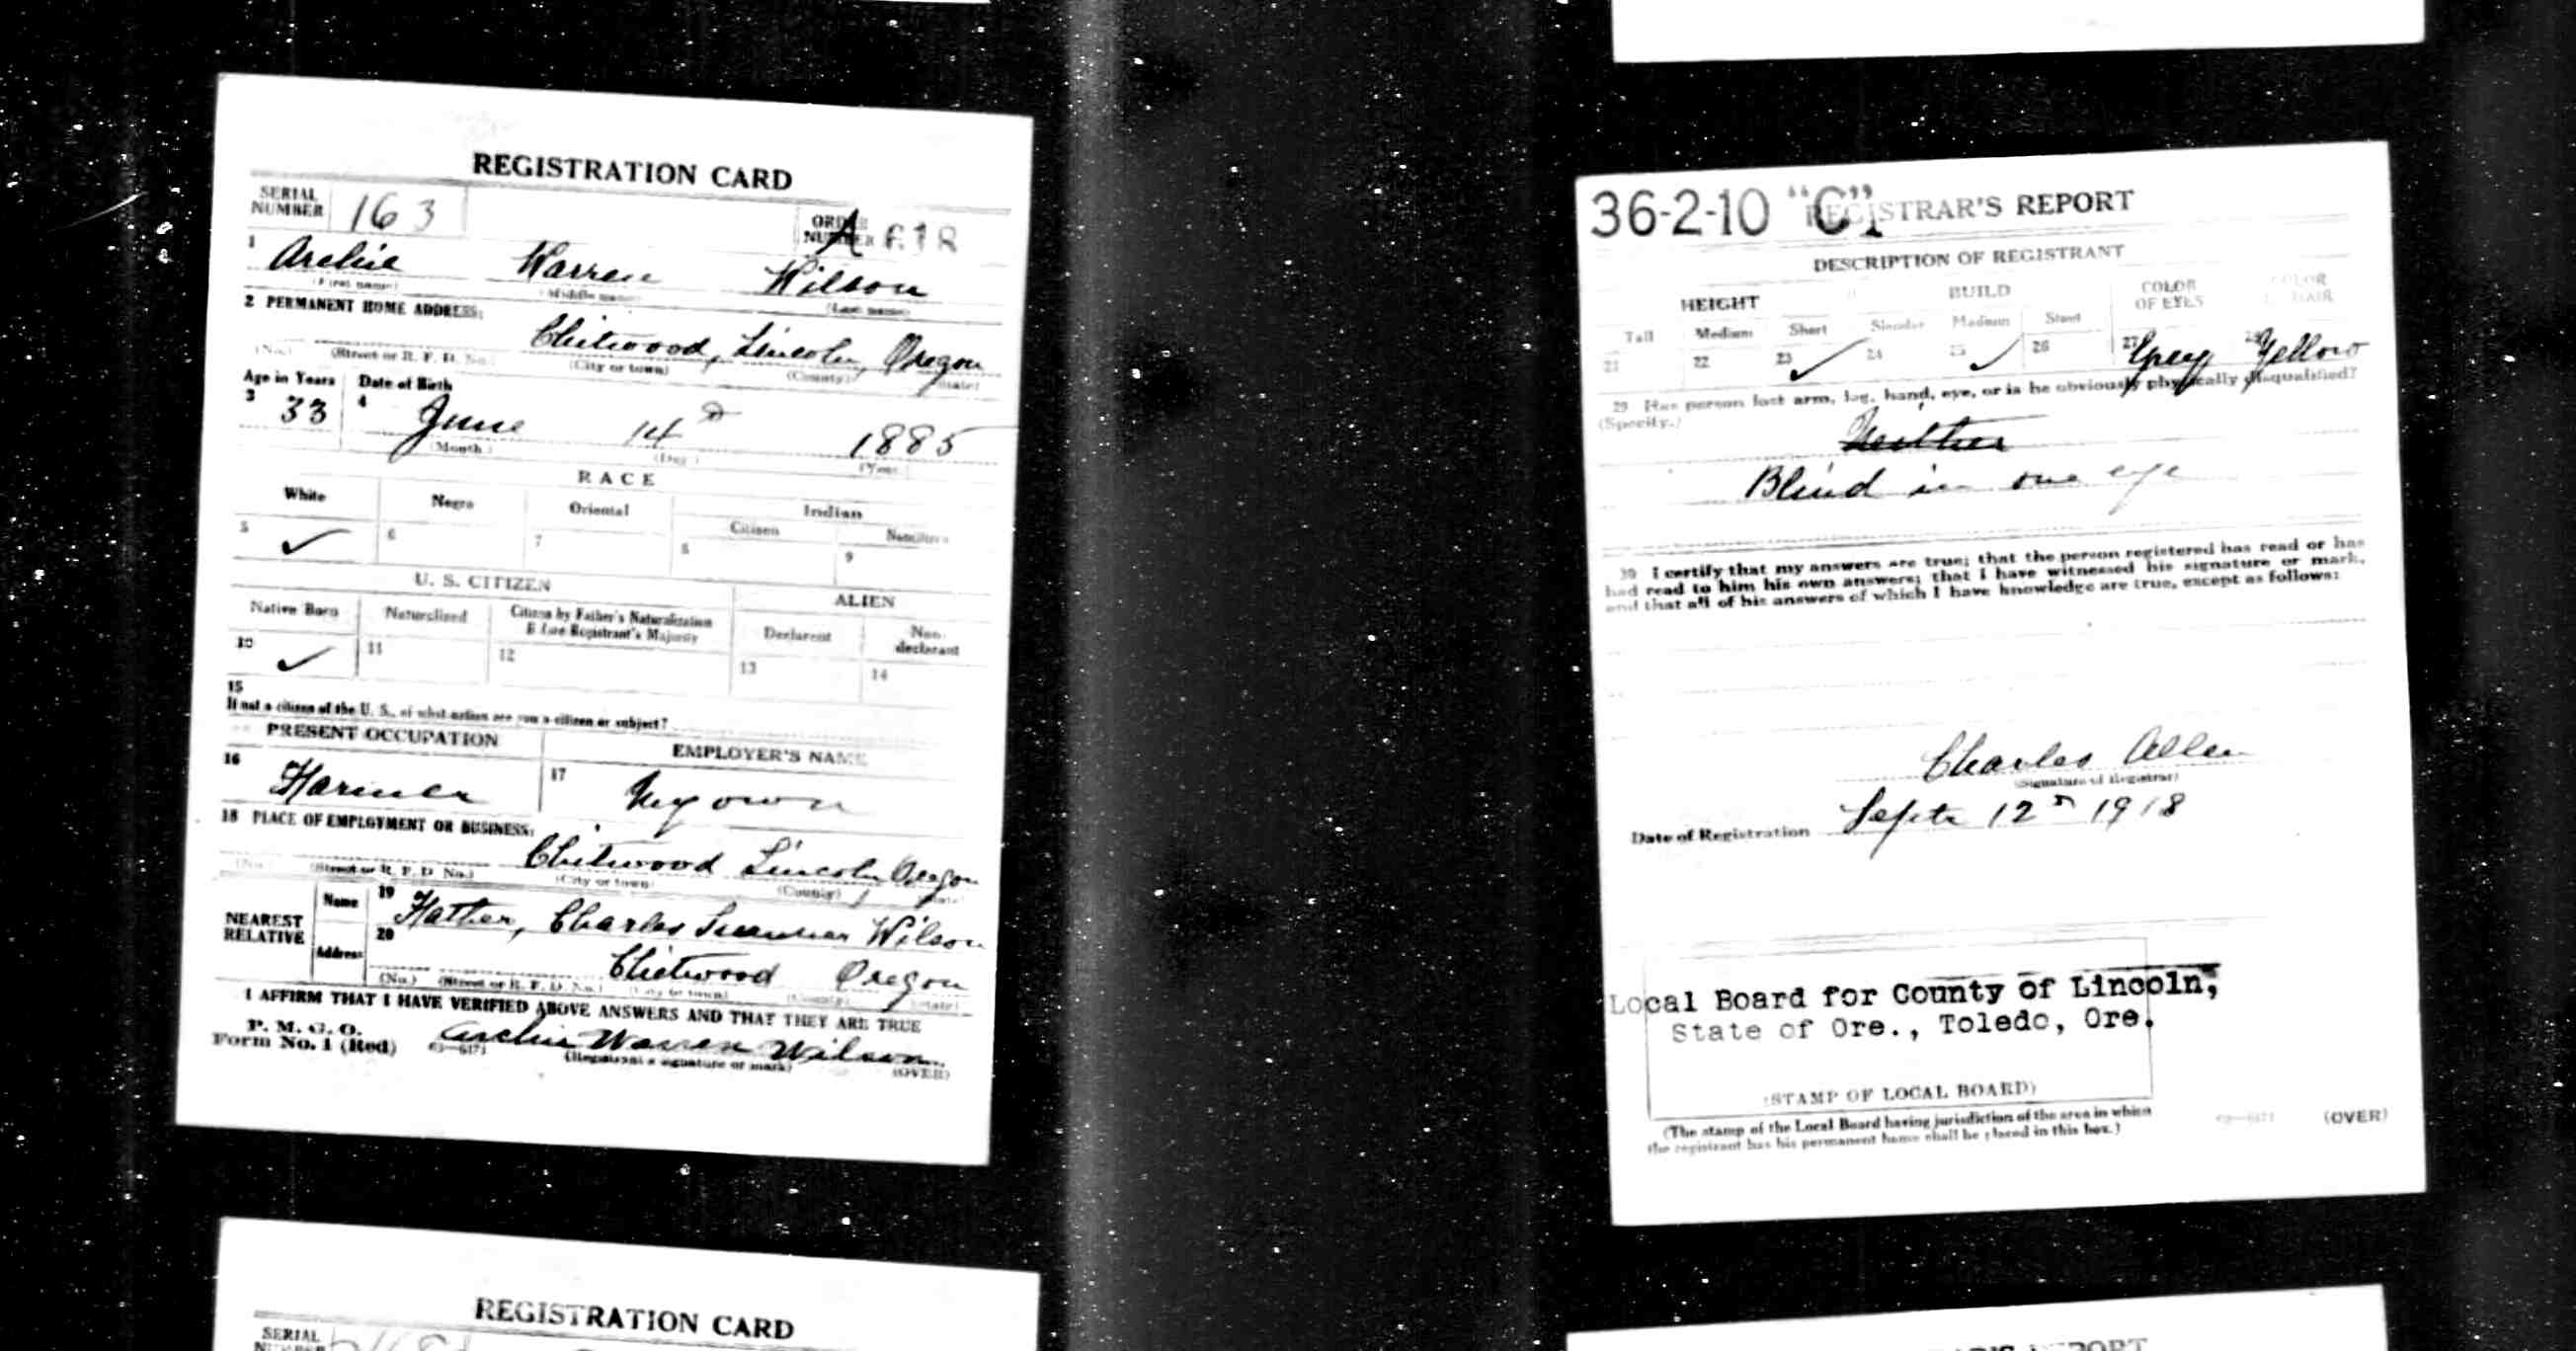 REGISTRATION CARD
SERIAL NUMBER 163 ORDER NUMBER A 618
1 Archie Warren Wilson
(First name) (Middle name) (Last name)
2 PERMANENT HOME ADDRESS:
Chitwood, Lincoln, Oregon
(No.) (Street or R. F. D. No.) (City or town) (County) (State)
Age in Years Date of Birth
3 33 4 June 14th 1885
(Month) (Day) (Year)
RACE
White Negro Oriental Indian
Citizen Noncitizen
5 ✓ 6 7 8 9
U. S. CITIZEN ALIEN
Native Born Naturalized Citizen by Father's Naturalization Before Registrant's Majority Declarant Non-declarant
10 ✓ 11 12 13 14
15
If not a citizen of the U. S., of what nation are you a citizen or subject?
PRESENT OCCUPATION EMPLOYER'S NAME
16 Farmer 17 My own
18 PLACE OF EMPLOYMENT OR BUSINESS:
Chitwood Lincoln Oregon
(No.) (Street or R. F. D. No.) (City or town) (County) (State)
NEAREST RELATIVE Name 19 Father, Charles Sumner Wilson
Address 20 Chitwood Oregon
(No.) (Street or R. F. D. No.) (City or town) (County) (State)
I AFFIRM THAT I HAVE VERIFIED ABOVE ANSWERS AND THAT THEY ARE TRUE
P. M. G. O.
Form No. 1 (Red) 03—6171 Archie Warren Wilson
(Registrant's signature or mark) (OVER)
REGISTRATION CARD
SERIAL NUMBER
36-2-10 "C" REGISTRAR'S REPORT
DESCRIPTION OF REGISTRANT
HEIGHT BUILD COLOR OF EYES COLOR OF HAIR
Tall Medium Short Slender Medium Stout
21 22 23 ✓ 24 25 ✓ 26 27 Grey 28 Yellow
29 Has person lost arm, leg, hand, eye, or is he obviously physically disqualified?
(Specify.)
Neither
Blind in one eye
30 I certify that my answers are true; that the person registered has read or has
had read to him his own answers; that I have witnessed his signature or mark,
and that all of his answers of which I have knowledge are true, except as follows:
Charles Allen
(Signature of Registrar)
Date of Registration Septr 12th 1918
Local Board for County of Lincoln,
State of Ore., Toledo, Ore.
(STAMP OF LOCAL BOARD)
(The stamp of the Local Board having jurisdiction of the area in which
the registrant has his permanent home shall be placed in this box.)
03—6171 (OVER)